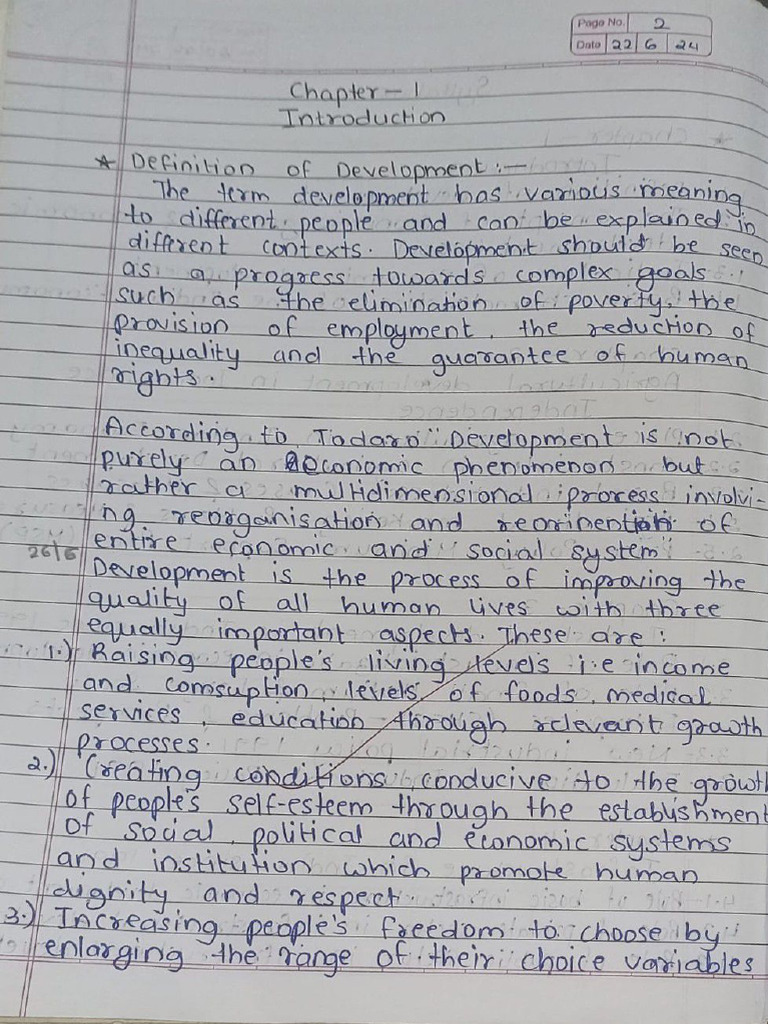 Page No. 2
Date 22 6 24
Chapter - 1
Introduction
* Definition of Development :-
The term development has various meaning
to different people and can be explained in
different contexts. Development should be seen
as a progress towards complex goals
such as the elimination of poverty, the
provision of employment, the reduction of
inequality and the guarantee of human
rights.
According to Todaro "Development is not
purely an economic phenomenon but
rather a multidimensional process involvi-
ng reorganisation and reorinention of
entire economic and social system"
26/6
Development is the process of improving the
quality of all human lives with three
equally important aspects. These are :
1.) Raising people's living levels i.e income
and comsuption levels of foods, medical
services, education through relevant growth
processes.
2.) Creating conditions conducive to the growth
of people's self-esteem through the establishment
of social, political and economic systems
and institution which promote human
dignity and respect
3.) Increasing people's freedom to choose by
enlarging the range of their choice variables